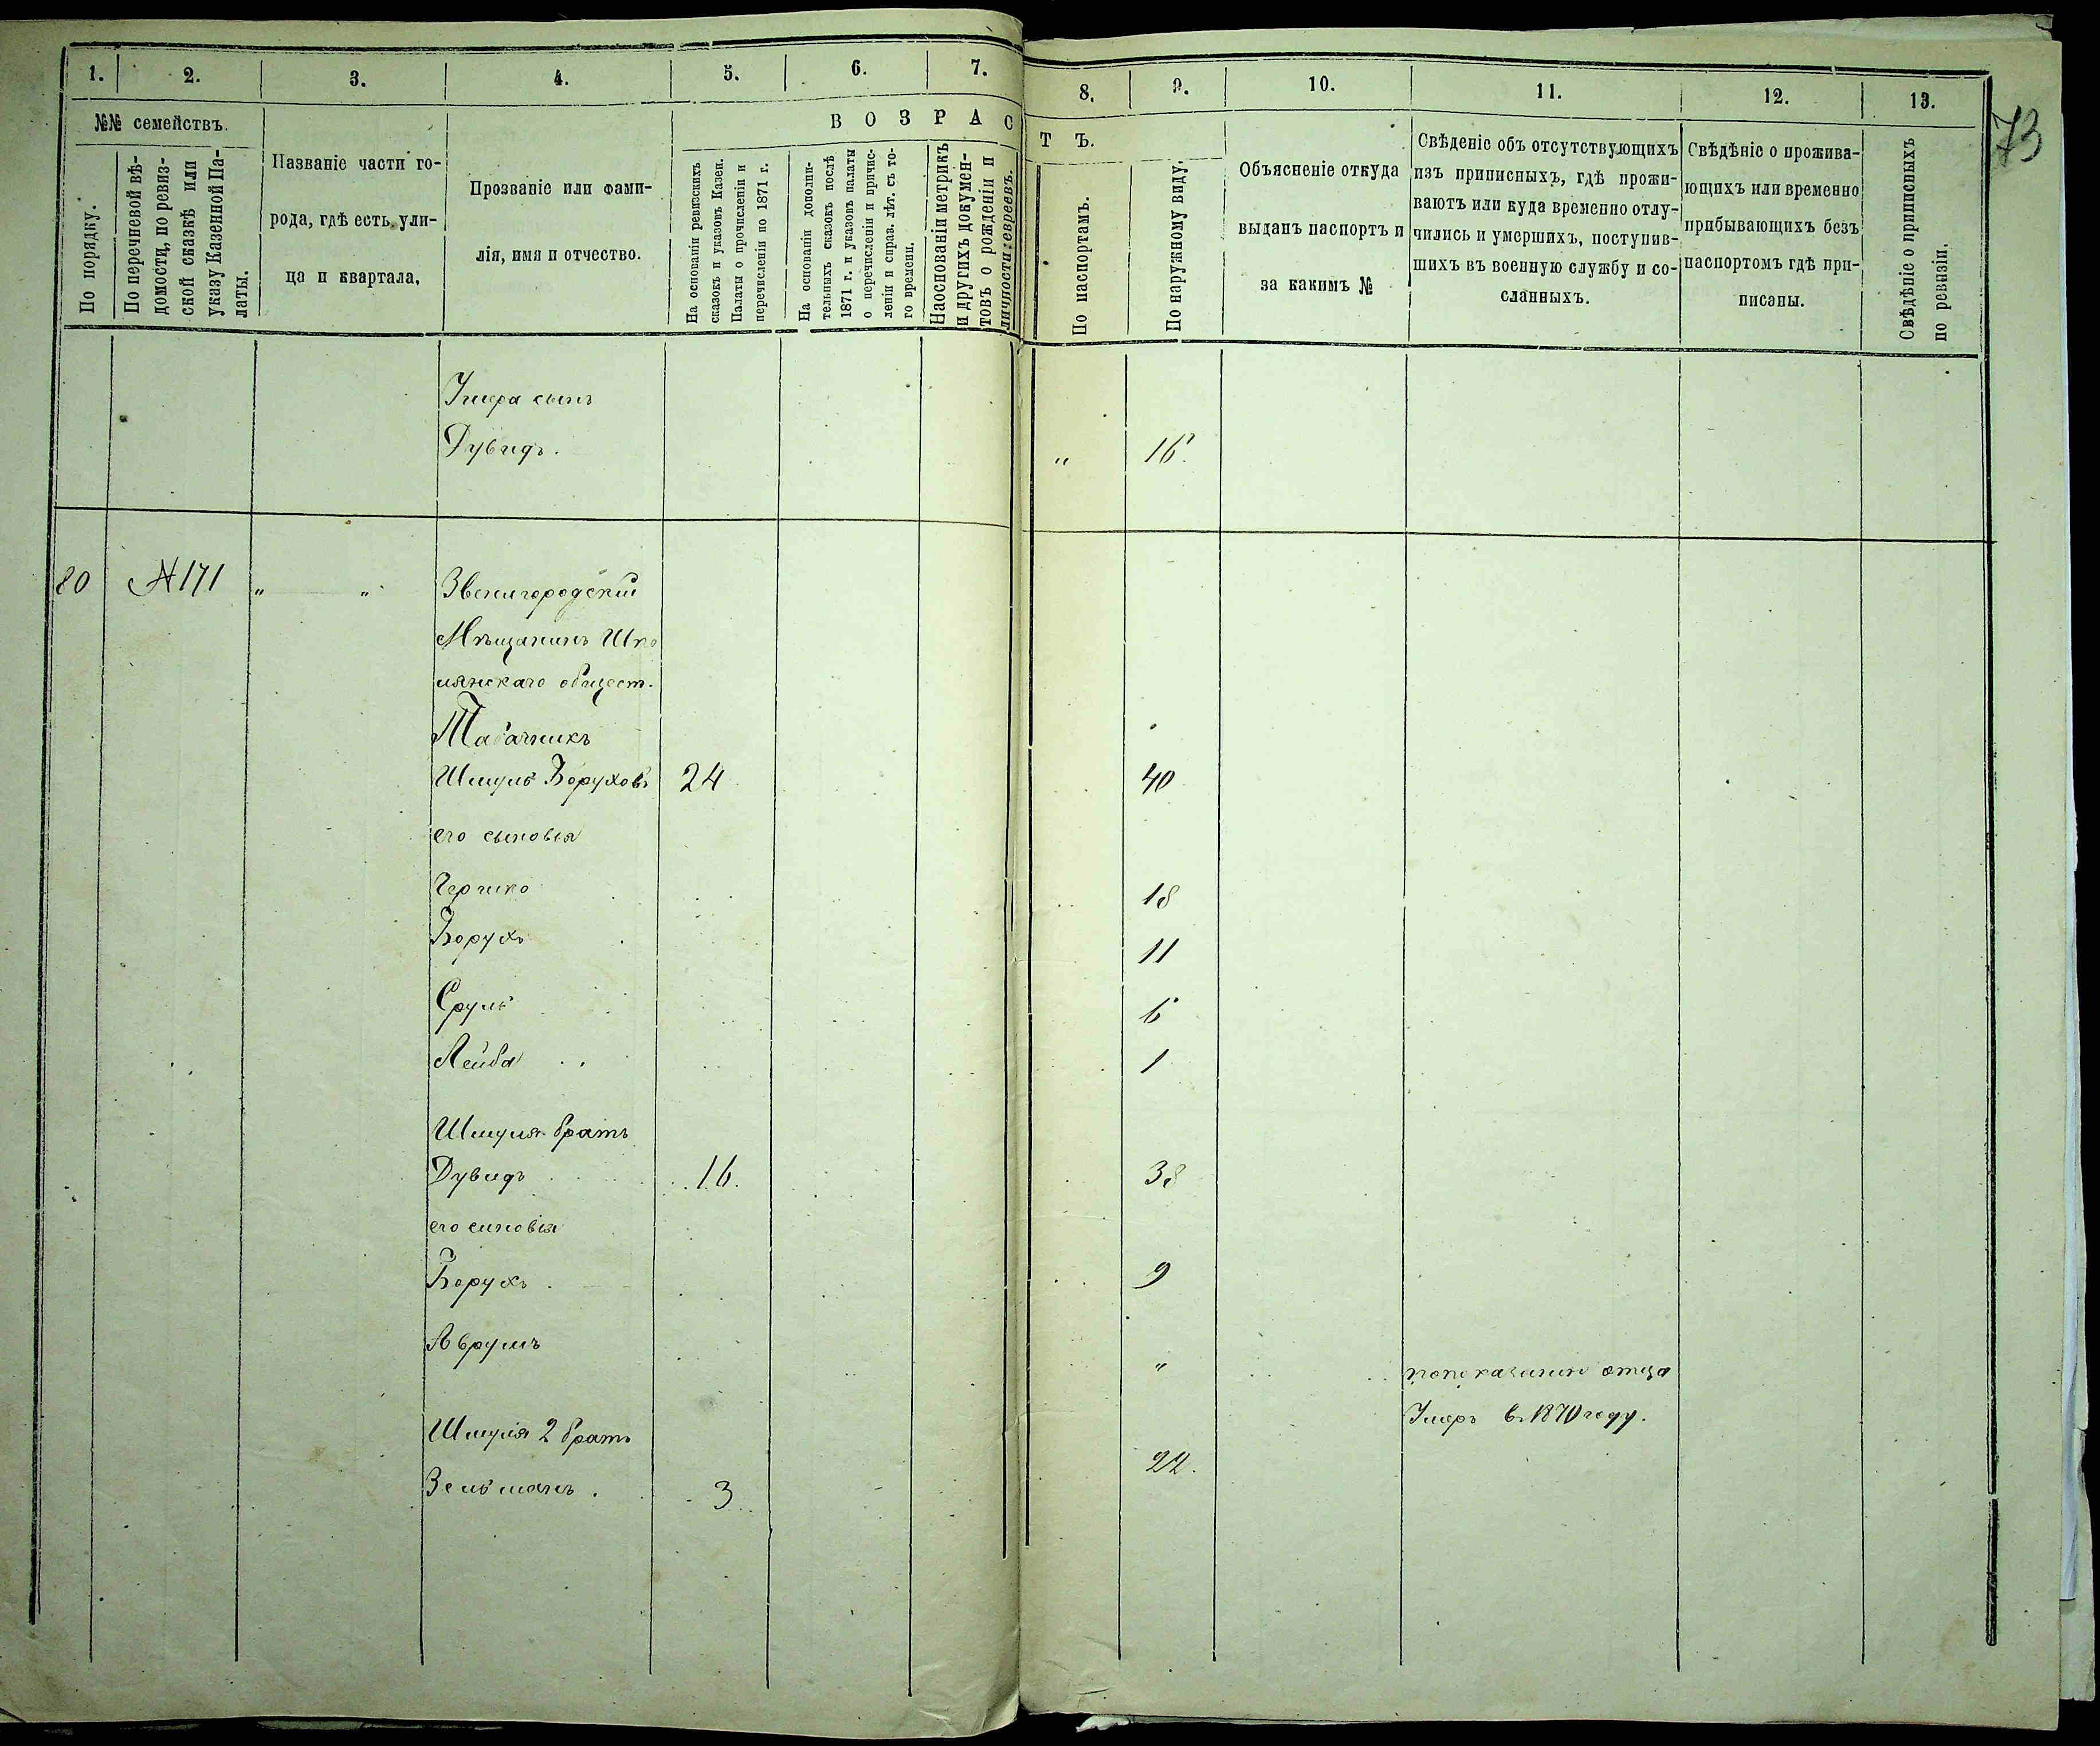 1. 2. 3. 4. 5. 6. 7. 8. 9. 10. 11. 12. 13.
73
№№ семействъ.
По порядку.
По перечневой вѣ-
домости, по ревиз-
ской сказкѣ или
указу Казенной Па-
латы.
Названіе части го-
рода, гдѣ есть ули-
ца и квартала,
Прозваніе или фами-
лія, имя и отчество.
ВОЗРАСТЪ.
На основаніи ревизскихъ
сказокъ и указовъ Казен.
Палаты о прочисленіи и
перечисленіи по 1871 г.
На основаніи дополни-
тельныхъ сказокъ послѣ
1871 г. и указовъ палаты
о перечисленіи и причис-
леніи и справ. лѣт. съ то-
го времени.
На основаніи метрикъ
и другихъ докумен-
товъ о рожденіи и
личности: евреевъ.
По паспортамъ.
По наружному виду.
Объясненіе откуда
выданъ паспортъ и
за какимъ №
Свѣденіе объ отсутствующихъ
изъ приписныхъ, гдѣ прожи-
ваютъ или куда временно отлу-
чились и умершихъ, поступив-
шихъ въ военную службу и со-
сланныхъ.
Свѣдѣніе о прожива-
ющихъ или временно
прибывающихъ безъ
паспортомъ гдѣ при-
писаны.
Свѣдѣніе о приписныхъ
по ревизіи.
сынъ
Дувидъ. " 16.
80 №171 " " Звенигородскій
Мѣщанинъ Шпо
лянскаго общест.
Табачникъ
Шмуль Боруховъ 24 40
его сыновья
18
Борухъ 11
Сруль 6
Лейба 1
Шмуля братъ
Дувидъ 16. 38
его сыновья
Борухъ. 9
Аврумъ " по показанію отца
Умеръ в 1870 году.
Шмуля 2 братъ
Зельманъ. 3 22.